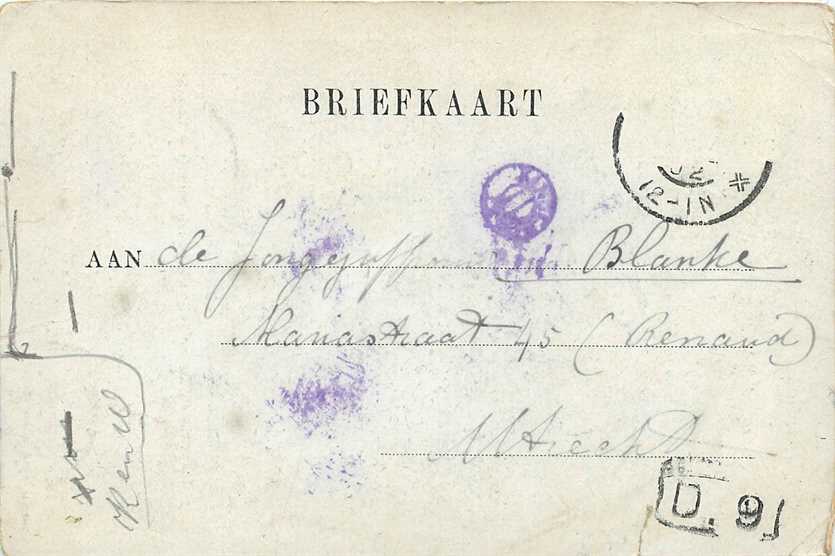 BRIEFKAART
02
12-1N
AAN de Jongejuffrouw Blanke
Mariastraat 45 (Renaud)
Utrecht
D. 9